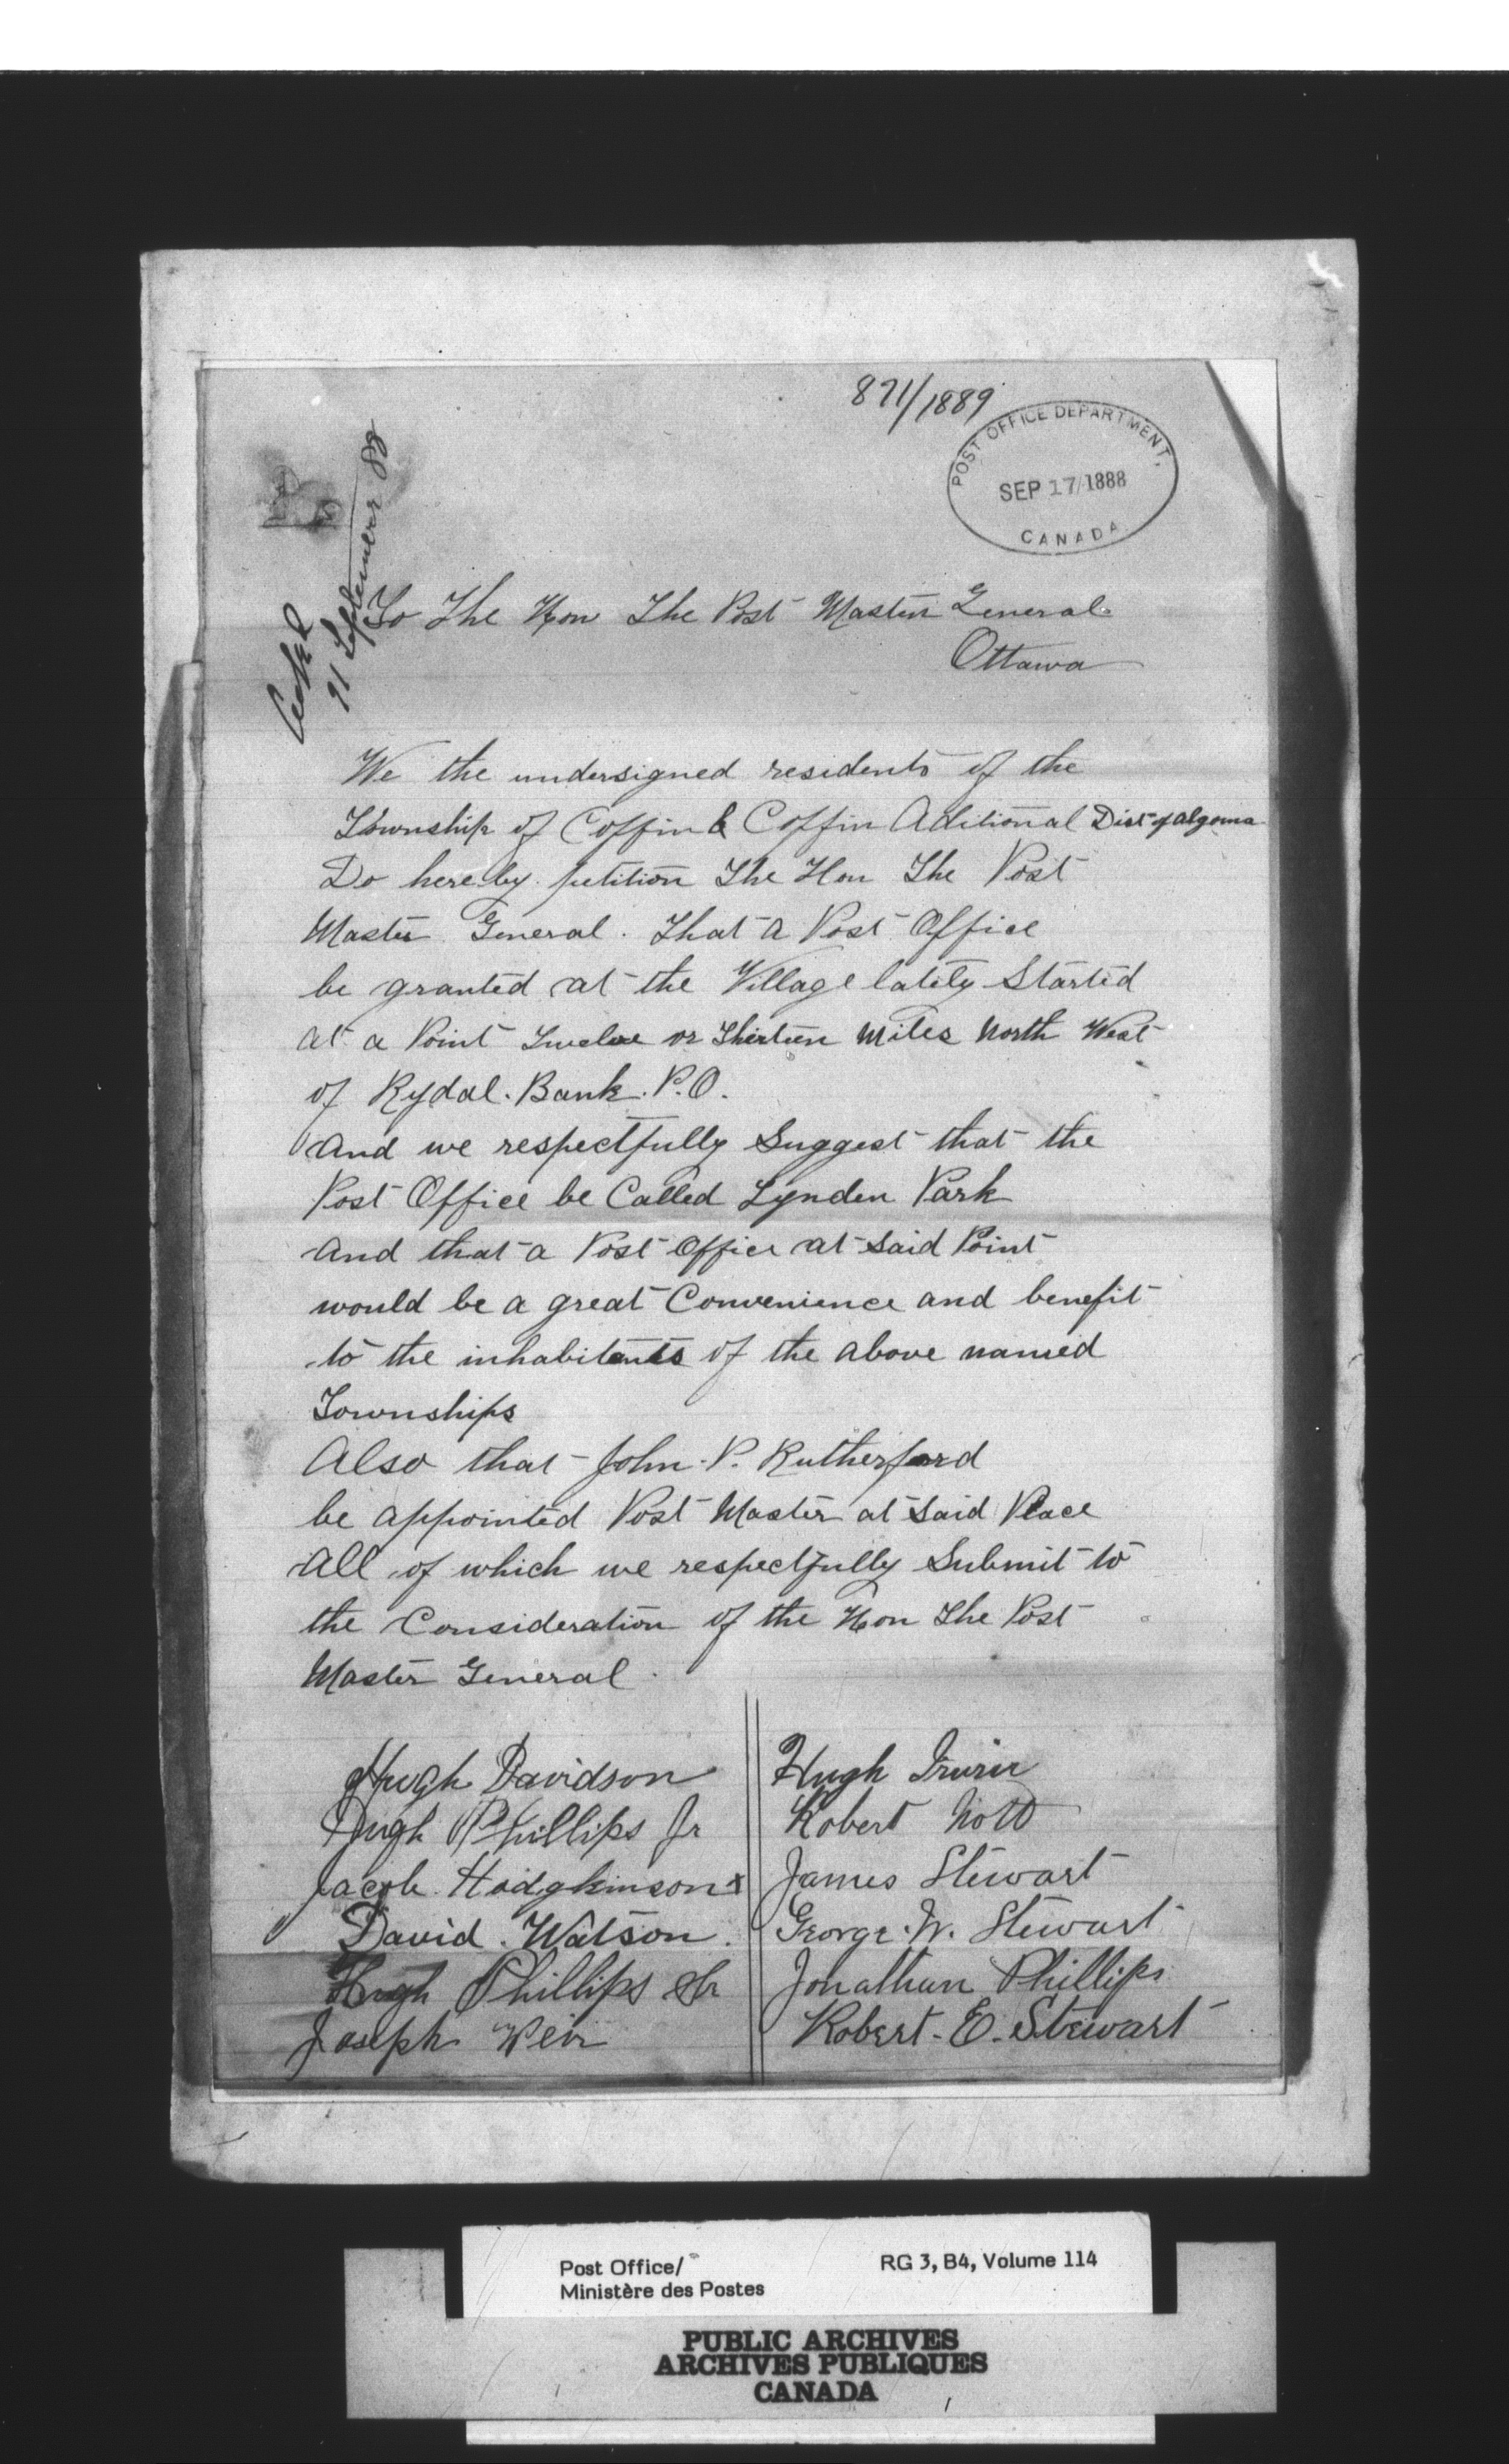 871/1889
POST OFFICE DEPARTMENT,
SEP 17/1888
CANADA
Septemeer 88
To The Hon The Post Master General
Ottawa
We the undersigned residents of the
Township of Coffin & Coffin Aditional Dist of Algoma
Do hereby petition The Hon The Post
Master General. That a Post Office
be granted at the Village lately Started
at a Point Twelve or Thirteen Miles North West
of Rydal. Bank. P.O.
And we respectfully Suggest that the
Post Office be Called Lynden Park
And that a Post Office at Said Point
would be a great Convenience and benefit
to the inhabitants of the above named
Townships
Also that John. P. Rutherford
be appointed Post Master at Said Place
All of which we respectfully Submit to
the Consideration of the Hon The Post
Master General.
Hugh Davidson
Hugh Phillips Jr
Jacob Hodgkinson x
David. Watson.
Hugh Phillips Sr
Joseph Weir
Hugh Irwin
Robert Nott
James Stewart
George. W. Stewart
Jonathan Phillips
Robert. E. Stewart
Post Office/
Ministère des Postes
RG 3, B4, Volume 114
PUBLIC ARCHIVES
ARCHIVES PUBLIQUES
CANADA